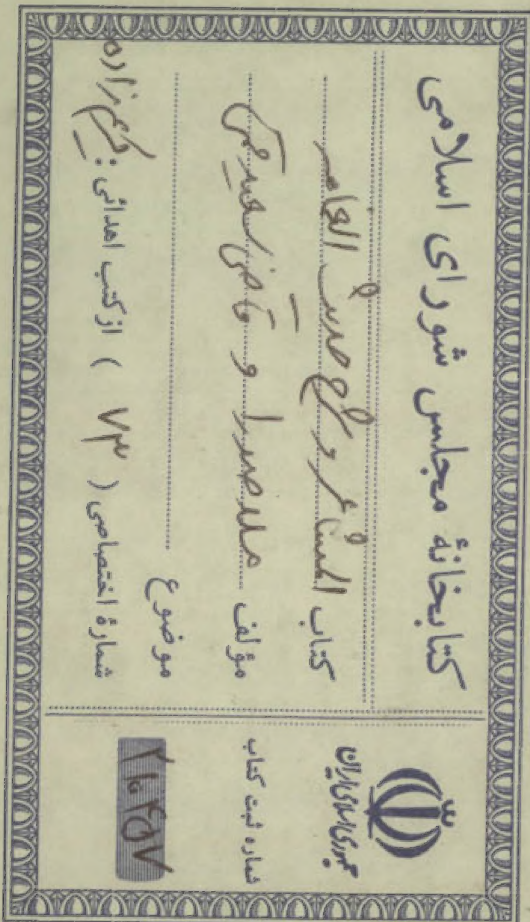 کتابخانهٔ مجلس شورای اسلامی
کتاب المشاعر و شرح حدیث الغمامه
مؤلف ملاصدرا و قاضی سعید قمی
موضوع
شمارهٔ اختصاصی ( ۷۳ ) از کتب اهدائی :
جمهوری اسلامی ایران
شماره ثبت کتاب